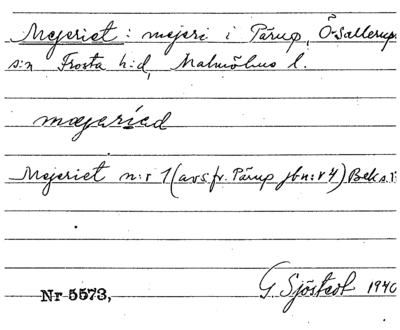 Mejeriet: mejeri i Pärup, Ö. Sallerup
s:n Frosta h:d, Malmöhus l.
mæjeríed
Mejeriet n:r 1 (avs. fr. Pärup jb n:r 4) Bek s. 1
Nr 5573,
G. Sjöstedt 1940